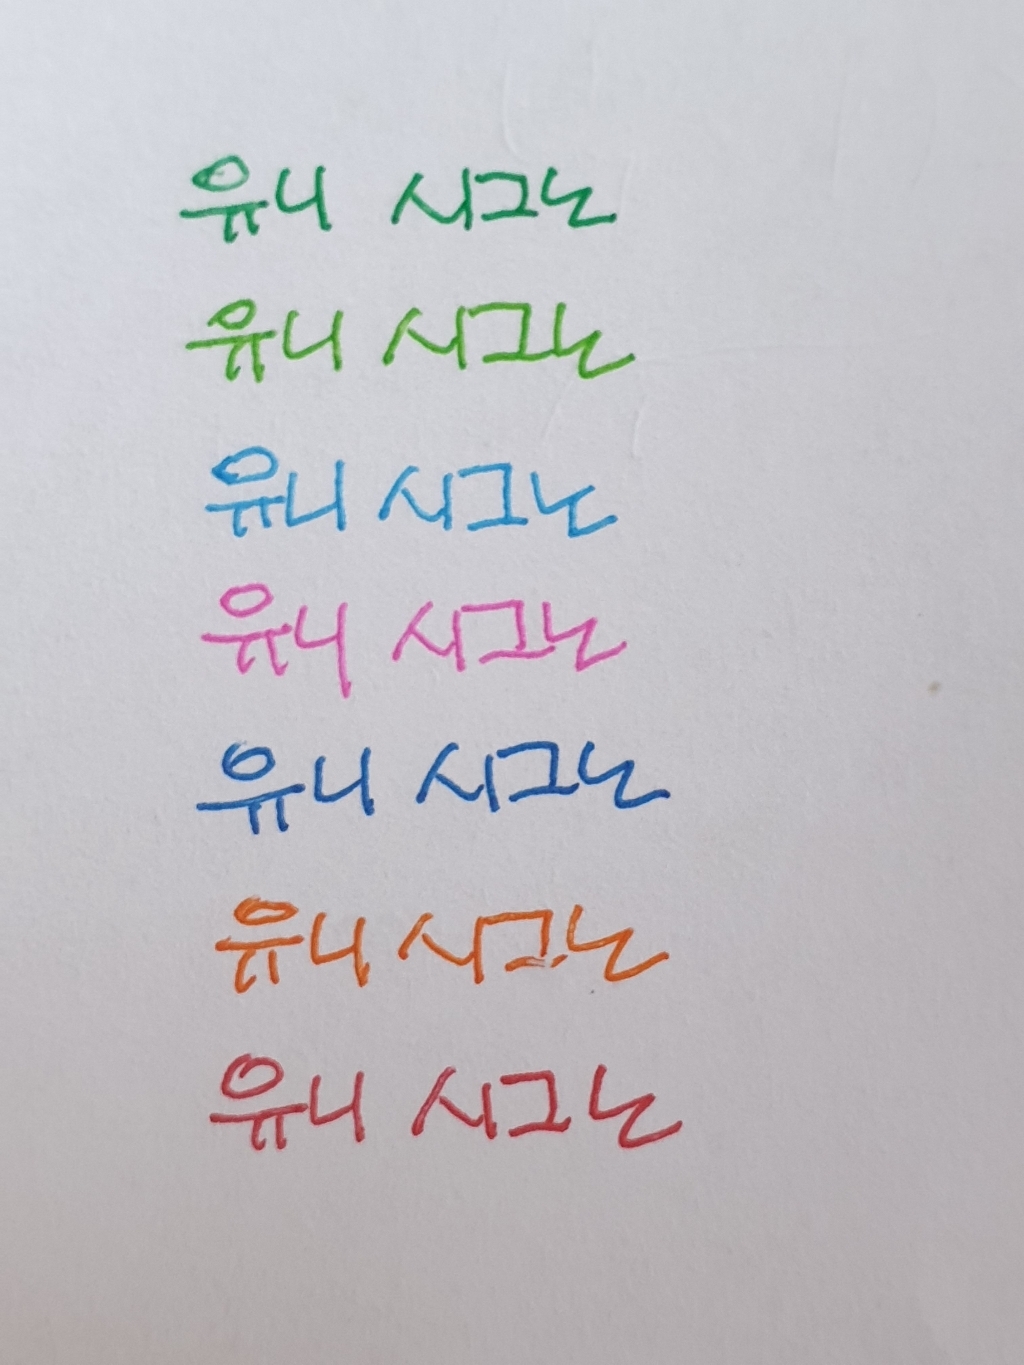 유니 시그노
유니 시그노
유니 시그노
유니 시그노
유니 시그노
유니 시그노
유니 시그노